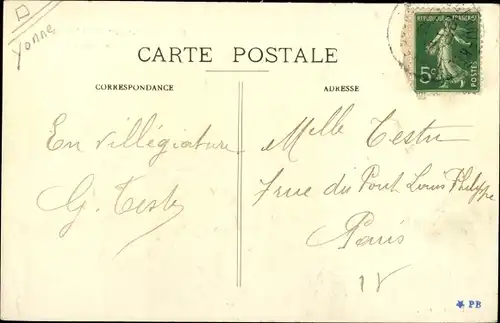 Yonne
REPUBLIQUE FRANÇAISE
5c
POSTES
CARTE POSTALE
CORRESPONDANCE
ADRESSE
En villégiature
G. Testu
Melle Testu
7 rue du Pont Louis Philippe
Paris
IV
PB